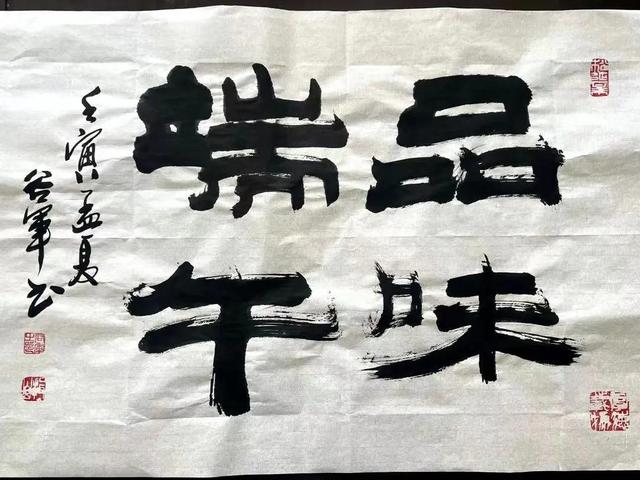 品味
端午
壬寅孟夏
谷军书